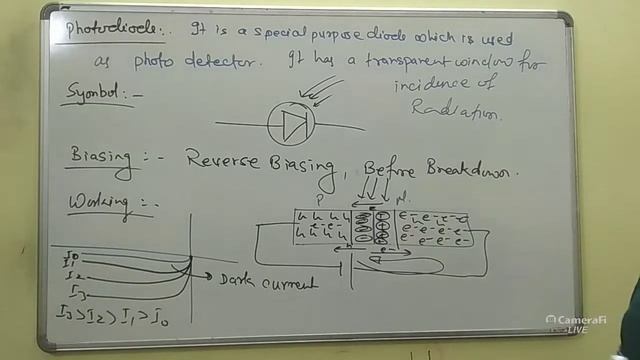 Photodiode:- It is a special purpose diode which is used
as photo detector. It has a transparent window for
incidence of
Radiation.
Symbol:-
Biasing:- Reverse Biasing, Before Breakdown.
Working:-
P N
h h h h e- e- e- e
h h h h e- e- e- e-
e- e- e- e- e- e-
e
h e-
I0
I1
I2
I3
Dark current
I3 > I2 > I1 > I0
CameraFi
LIVE